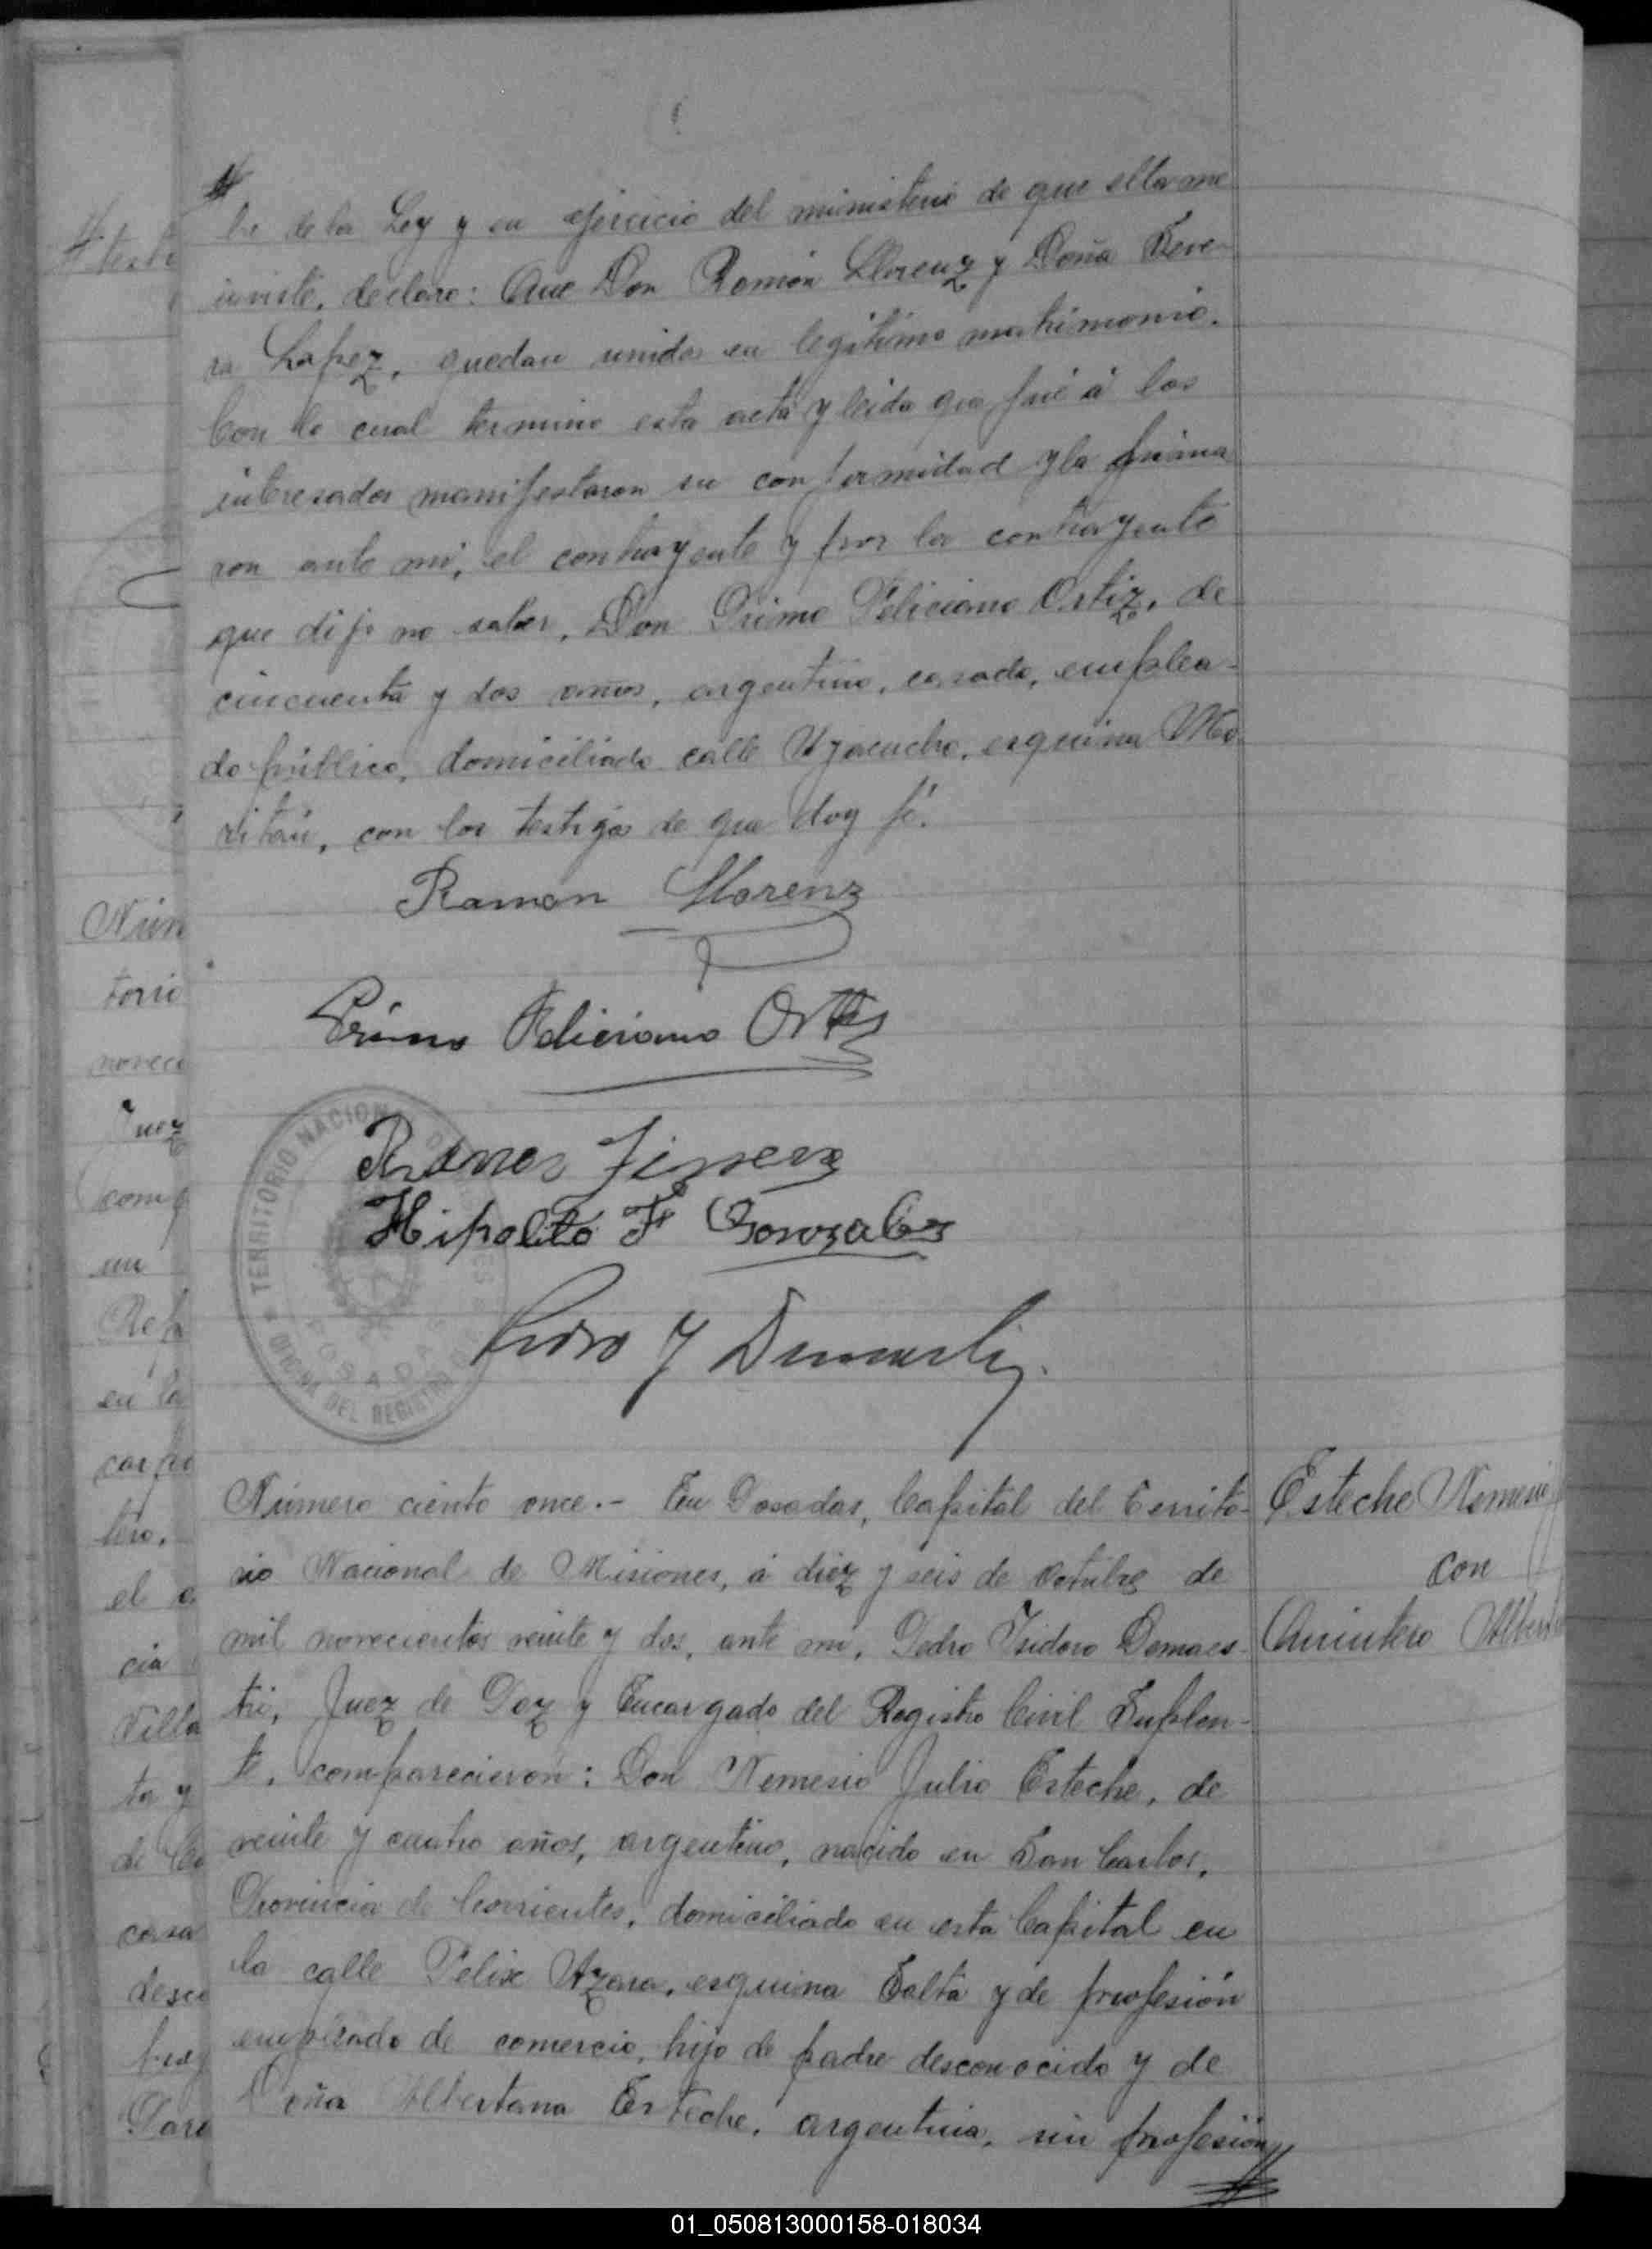 bre de la Ley y en ejercicio del ministerio de que ella me
inviste, declaro: Que Don Ramón Llorenz y Doña Seve-
ra Lopez, quedan unidos en legítimo matrimonio.
Con lo cual termino esta acta y leida que fué á los
interesados manifestaron su conformidad y la firma
ron ante mi, el contrayente y por la contrayente
que dijo no saber, Don Primo Feliciano Ortiz, de
cincuenta y dos años, argentino, casado, emplea-
do público, domiciliado calle Ayacucho, esquina
con los testigos de que doy fé.
Ramon Llorenz
Primo Feliciano Ortiz
Ramon
Hipolito F Gonzalez
Pedro Y Demaestri
TERRITORIO NACIONAL DE MISIONES
OFICINA DEL REGISTRO
POSADAS
Número ciento once.- En Posadas, Capital del Territo-
rio Nacional de Misiones, á diez y seis de Octubre de
mil novecientos veinte y dos, ante mi, Pedro Isidoro Demaes-
tri, Juez de Paz y Encargado del Registro Civil Suplen-
te, comparecieron: Don Nemesio Julio Esteche, de
veinte y cuatro años, argentino, nacido en San Carlos,
Provincia de Corrientes, domiciliado en esta Capital en
la calle Felix Azara, esquina Salta y de profesión
empleado de comercio, hijo de padre desconocido y de
Doña Albertana Esteche, argentina, sin profesión
Esteche Nemesio
con
Quintero
Núm
torio
novec
Juez
comp
un
Rep
en la
tero.
el
cia
Villa
ta y
de
casa
desco
01_050813000158-018034